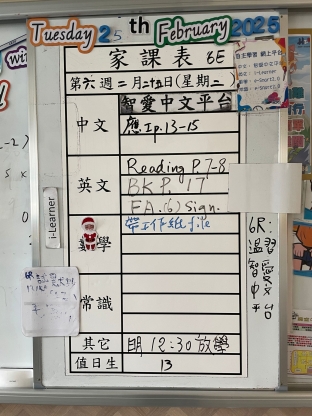 Tuesday 25th February 2025
家課表 6E
第六週二月二十五日(星期二)
智愛中文平台
中文
應.Ip.13-15
英文
Reading P.7-8
BK P. 17
FA.(6) Sign.
數學
帶工作紙file
常識
其它
明 12:30 放學
值日生
13
i-Learner
自主學習 網上平台
6R:
溫習
智愛
中文
平台